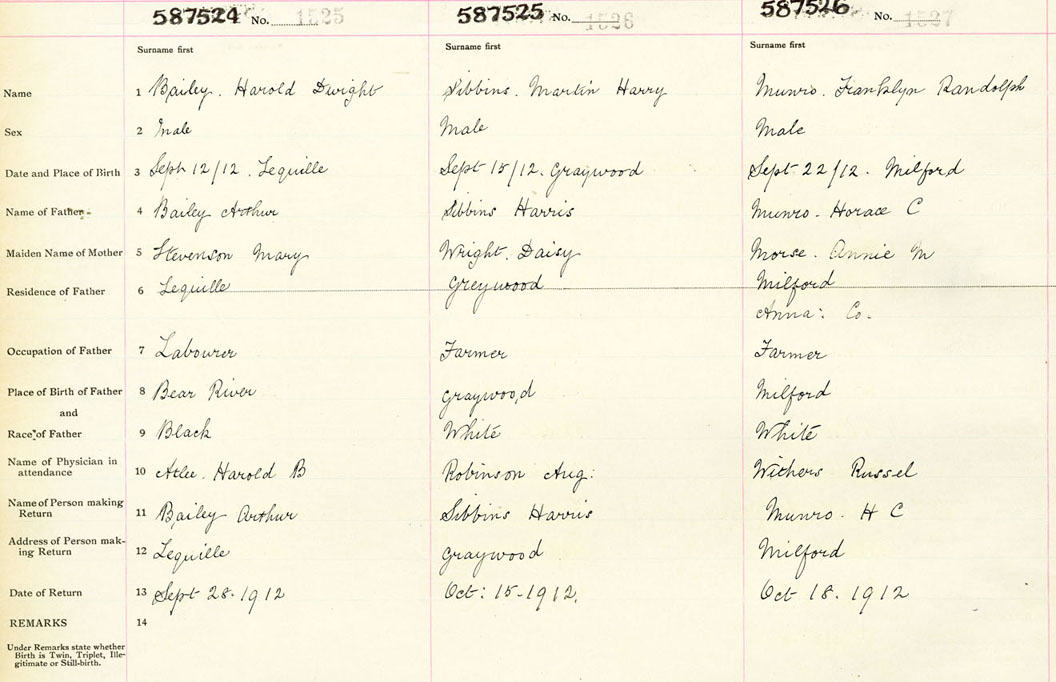 587524 No. 1525 587525 No. 1526 587526 No. 1527
Surname first Surname first Surname first
Name 1 Bailey. Harold Dwight Sibbins. Martin Harry Munro. Franklyn Randolph
Sex 2 Male Male Male
Date and Place of Birth 3 Sept 12/12. Lequille Sept 15/12. Graywood Sept 22/12. Milford
Name of Father 4 Bailey Arthur Sibbins Harris Munro. Horace C
Maiden Name of Mother 5 Stevenson Mary Wright. Daisy Morse. Annie M
Residence of Father 6 Lequille Greywood Milford
Anna: Co.
Occupation of Father 7 Labourer Farmer Farmer
Place of Birth of Father 8 Bear River Graywood Milford
and
Race of Father 9 Black White White
Name of Physician in
attendance 10 Atlee. Harold B Robinson Aug: Withers Russel
Name of Person making
Return 11 Bailey Arthur Sibbins Harris Munro. H C
Address of Person mak-
ing Return 12 Lequille Graywood Milford
Date of Return 13 Sept 28. 1912 Oct: 15-1912. Oct 18. 1912
REMARKS 14
Under Remarks state whether
Birth is Twin, Triplet, Ille-
gitimate or Still-birth.